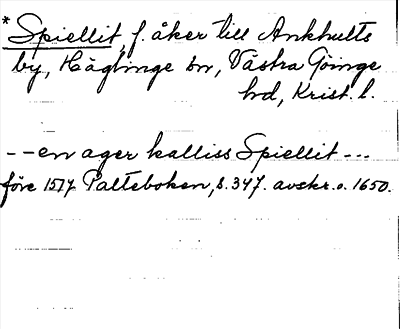 * Spiellit, f. åker till Ankhults
by, Häglinge sn, Västra Göinge
hd, Krist. l.
--en ager kalliss Spiellit---
före 1577 Palteboken, s. 347. avskr. o. 1650.